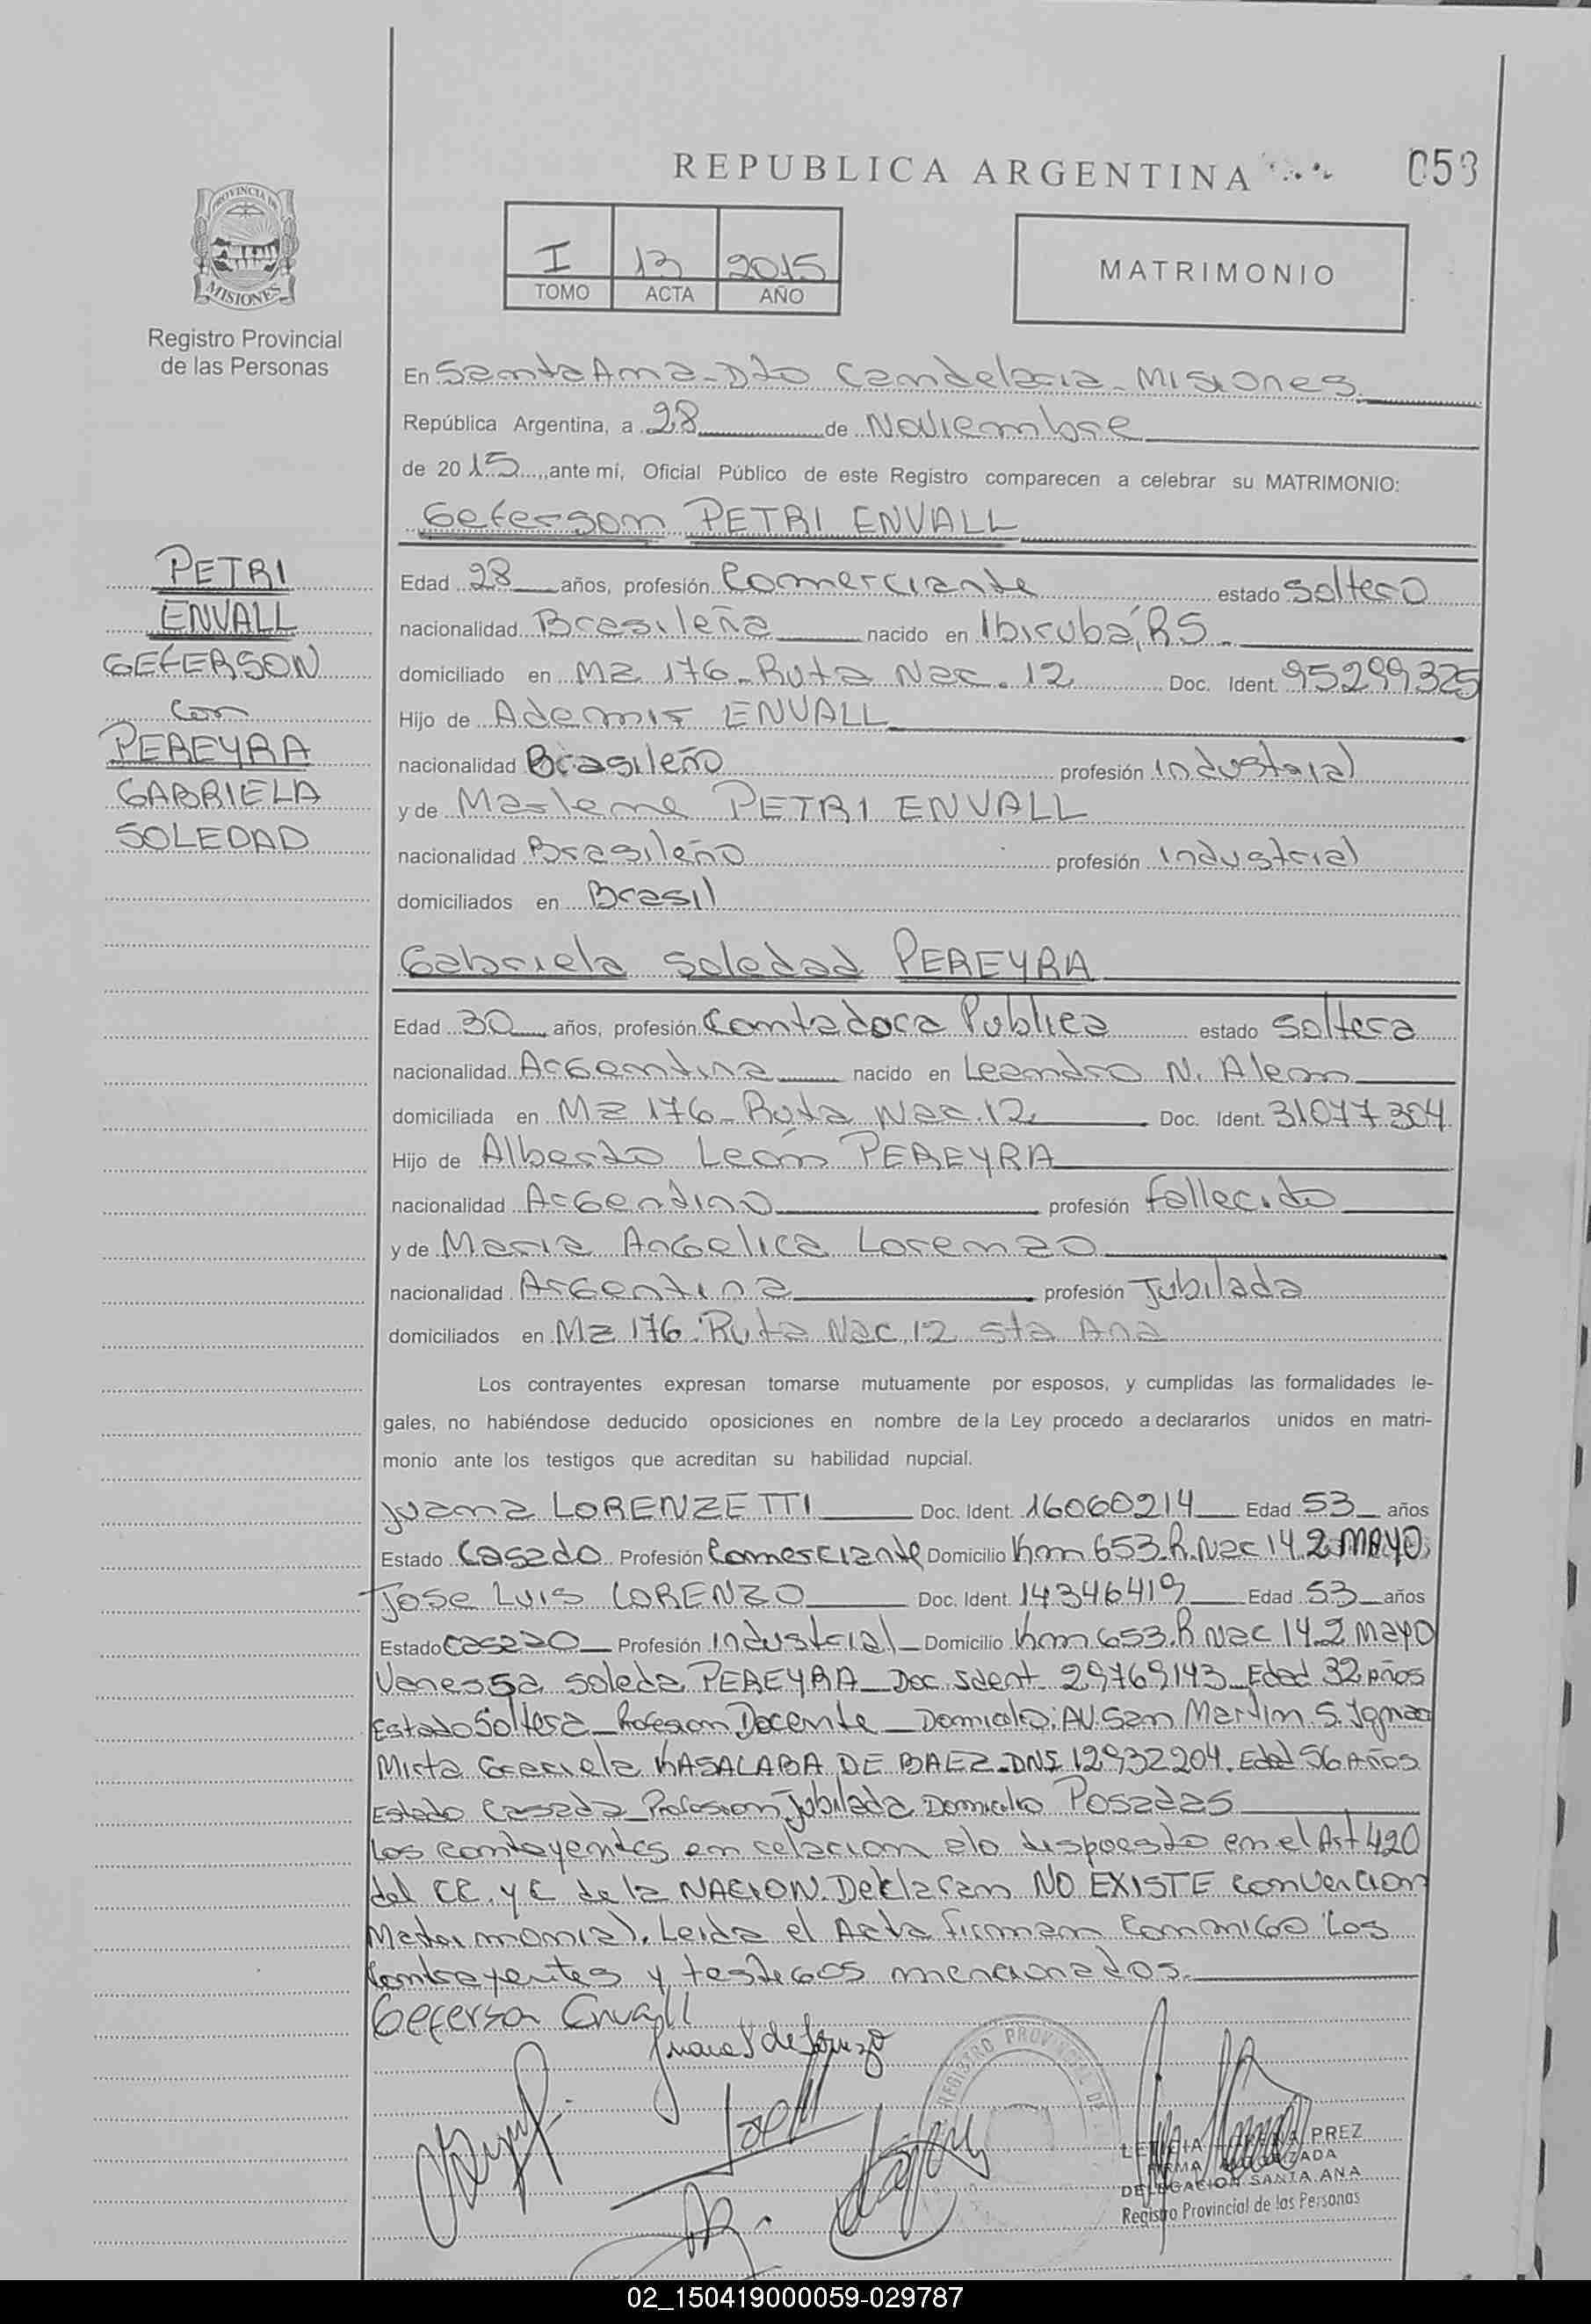 REPUBLICA ARGENTINA
059
PROVINCIA DE
MISIONES
Registro Provincial
de las Personas
I 13 2015
TOMO ACTA AÑO
MATRIMONIO
En Santa Ana - Dto Candelaria - Misiones
República Argentina, a 28 de Noviembre
de 2015, ante mí, Oficial Público de este Registro comparecen a celebrar su MATRIMONIO:
Geferson PETRI ENVALL
PETRI
ENVALL
GEFERSON
con
PEREYRA
GABRIELA
SOLEDAD
Edad 28 años, profesión Comerciante estado soltero
nacionalidad Brasileña nacido en Ibirubá, RS.
domiciliado en Mz 176 - Ruta Nac. 12 Doc. Ident. 95299325
Hijo de Ademir ENVALL
nacionalidad Brasileño profesión industrial
y de Marlene PETRI ENVALL
nacionalidad Brasileño profesión industrial
domiciliados en Brasil
Gabriela Soledad PEREYRA
Edad 30 años, profesión Contadora Publica estado soltera
nacionalidad Argentina nacido en Leandro N. Alem
domiciliada en Mz 176 - Ruta Nac. 12 Doc. Ident. 31077.304
Hijo de Alberto León PEREYRA
nacionalidad Argentino profesión fallecido
y de Maria Angelica Lorenzo
nacionalidad Argentina profesión Jubilada
domiciliados en Mz 176. Ruta Nac. 12 Sta Ana
Los contrayentes expresan tomarse mutuamente por esposos, y cumplidas las formalidades le-
gales, no habiéndose deducido oposiciones en nombre de la Ley procedo a declararlos unidos en matri-
monio ante los testigos que acreditan su habilidad nupcial.
Juana LORENZETTI Doc. Ident. 16060214 Edad 53 años
Estado Casado Profesión Comerciante Domicilio Km 653. R. Nac 14. 2 MAYO
Jose Luis LORENZO Doc. Ident. 14346419 Edad 53 años
Estado casado Profesión Industrial Domicilio Km 653. R Nac 14. 2 Mayo
Vanessa Soleda PEREYRA - Doc. Ident 29769143 - Edad 32 Años
Estado Soltera - Profesion Docente - Domicilio: AV. San Martin S. Ignacio
Mirta Graciela KASALABA DE BAEZ - DNI 12932204. Edad 56 Años
Estado Casada - Profesion Jubilada Domicilio Posadas
Los contrayentes en relacion alo dispuesto en el Art 420
del CC. y C de la NACION. Declaran NO EXISTE convencion
Matrimonial. Leida el Acta firman conmigo Los
Contrayentes y testigos mencionados.
Geferson Envall
REGISTRO PROVINCIAL DE
PREZ
DELEGACION SANTA ANA
Registro Provincial de las Personas
02_150419000059-029787